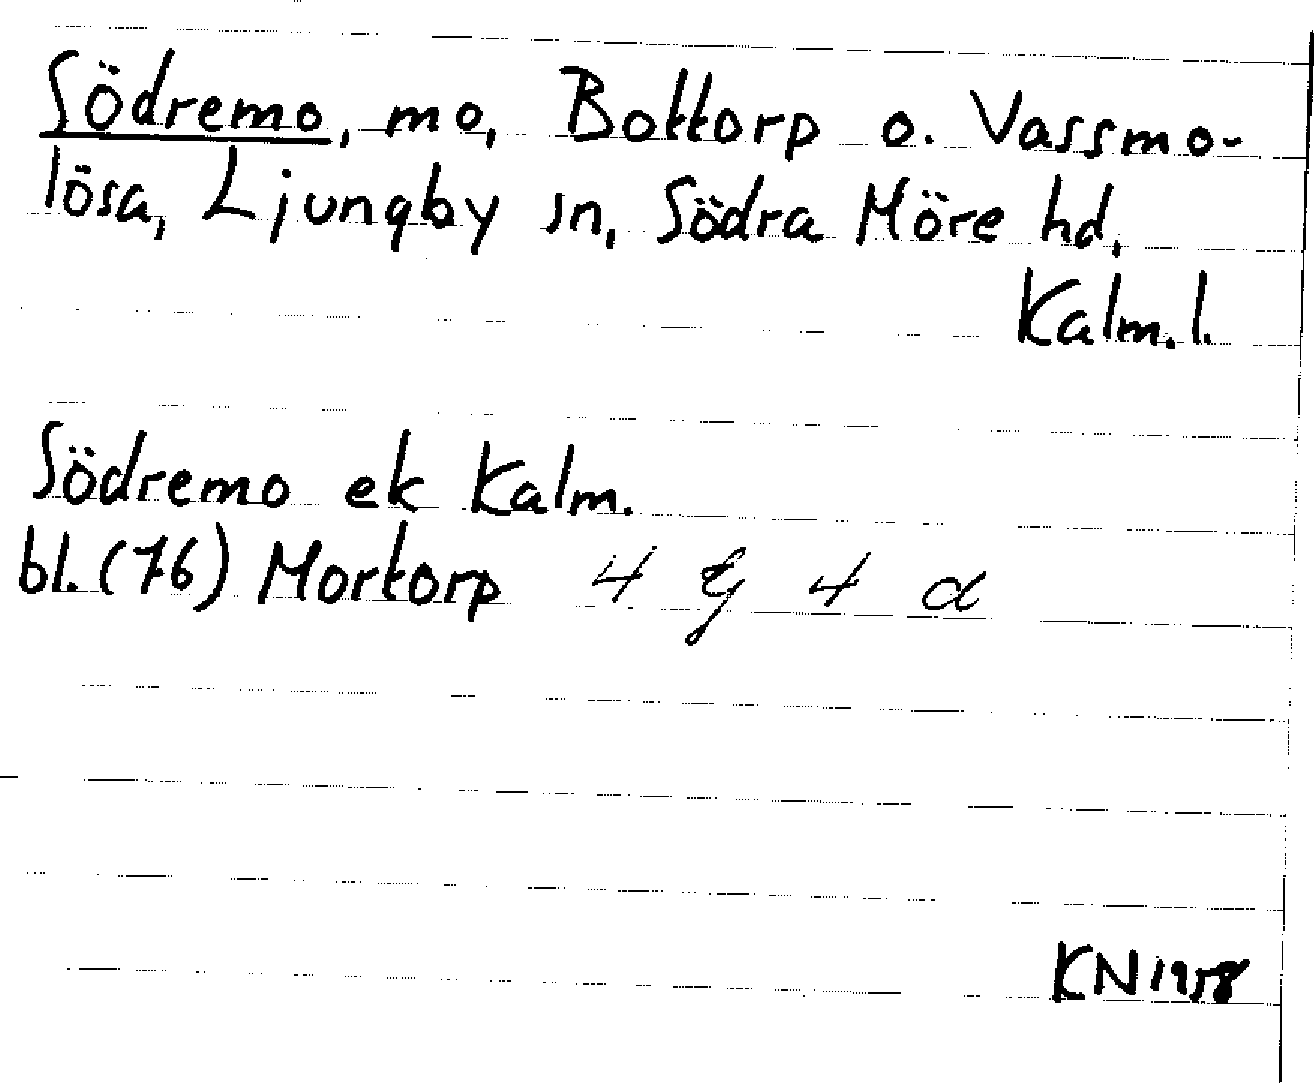 Södremo, mo, Bottorp o. Vassmo-
lösa, Ljungby sn, Södra Möre hd,
Kalm. l.
Södremo ek Kalm.
bl. (76) Mortorp 4 g 4 d
KN 1958